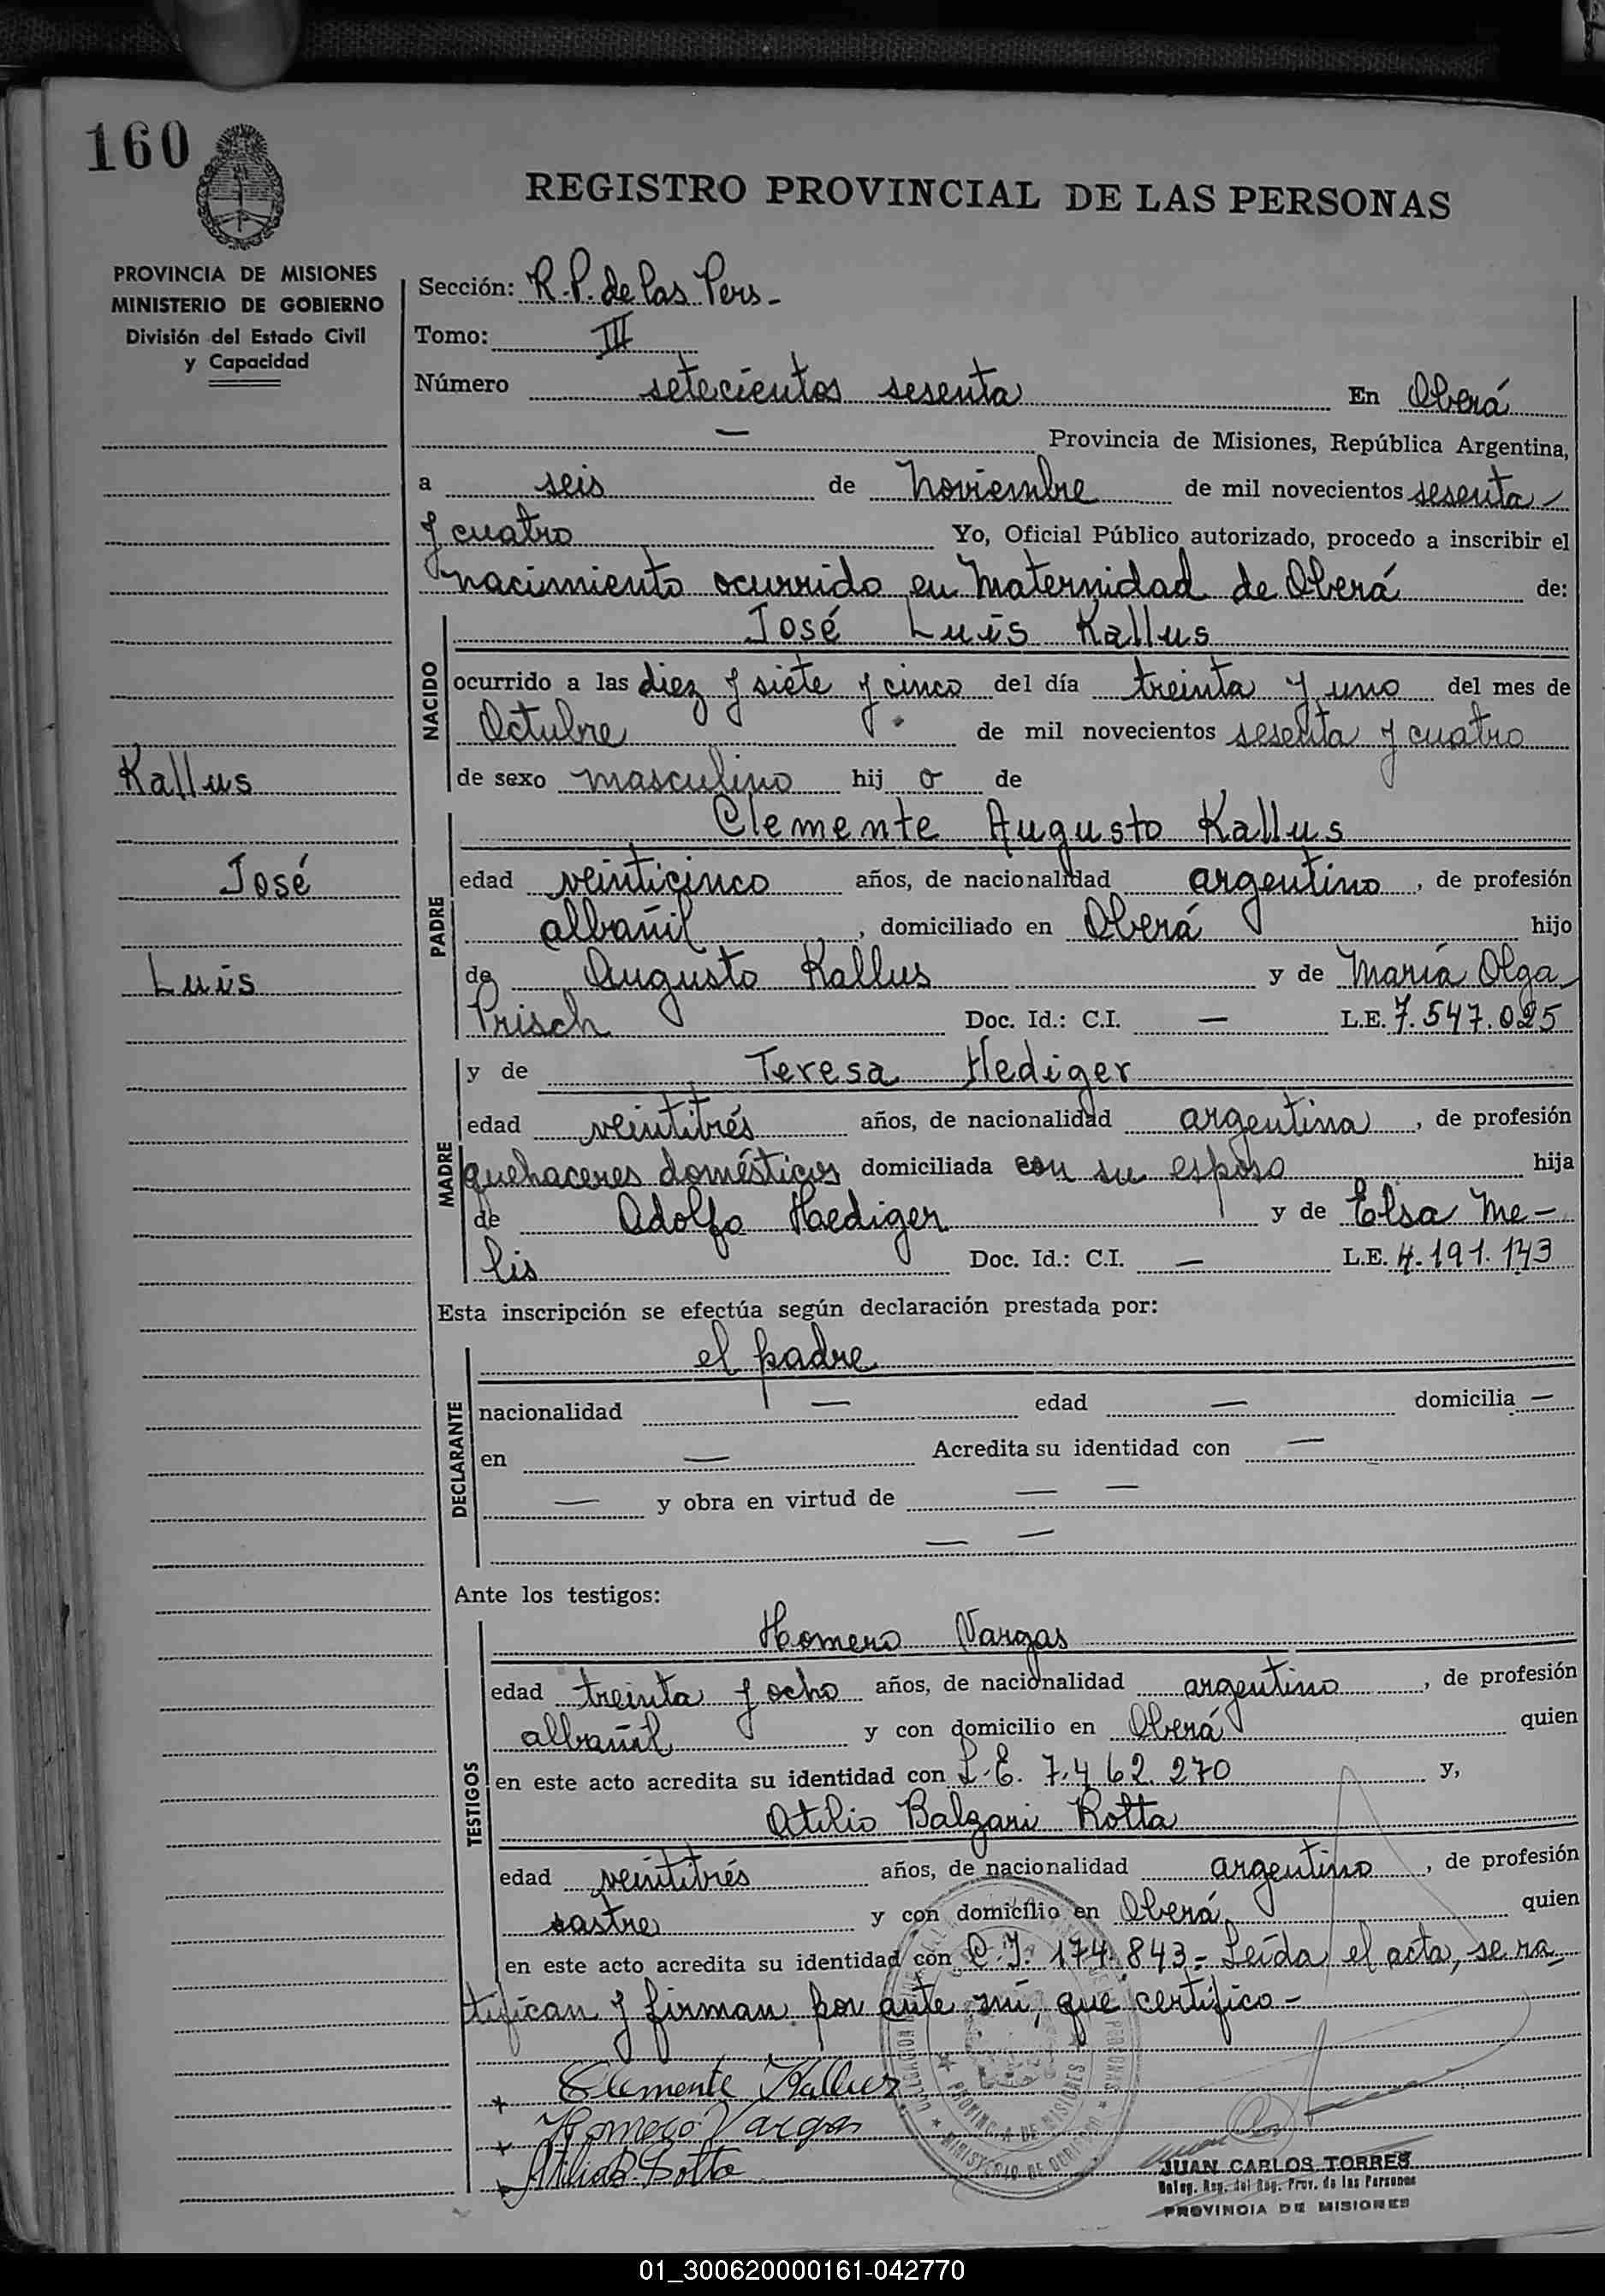 160
REGISTRO PROVINCIAL DE LAS PERSONAS
PROVINCIA DE MISIONES
MINISTERIO DE GOBIERNO
División del Estado Civil
y Capacidad
Sección: R.P. de las Pers-
Tomo: III
Número setecientos sesenta En Oberá
— Provincia de Misiones, República Argentina,
a seis de noviembre de mil novecientos sesenta
y cuatro Yo, Oficial Público autorizado, procedo a inscribir el
nacimiento ocurrido en Maternidad de Oberá de:
NACIDO
José Luis Kallus
ocurrido a las diez y siete y cinco del día treinta y uno del mes de
Octubre de mil novecientos sesenta y cuatro
de sexo masculino hij o de
Kallus
José
Luis
PADRE
Clemente Augusto Kallus
edad veinticinco años, de nacionalidad argentino, de profesión
albañil, domiciliado en Oberá hijo
de Augusto Kallus y de María Olga
Prisch Doc. Id.: C.I. — L.E. 7.547.025
MADRE
y de Teresa Hediger
edad veintitrés años, de nacionalidad argentina, de profesión
quehaceres domésticos domiciliada con su esposo hija
de Adolfo Haediger y de Elsa Me-
lis Doc. Id.: C.I. — L.E. 4.191.143
Esta inscripción se efectúa según declaración prestada por:
DECLARANTE
el padre
nacionalidad — edad — domicilia —
en — Acredita su identidad con —
— y obra en virtud de — —
— —
Ante los testigos:
TESTIGOS
Homero Vargas
edad treinta y ocho años, de nacionalidad argentino, de profesión
albañil y con domicilio en Oberá quien
en este acto acredita su identidad con L.E. 7.462.270 y,
Atilio Balzari Rotta
edad veintitrés años, de nacionalidad argentino, de profesión
sastre y con domicilio en Oberá quien
en este acto acredita su identidad con C.I. 174.843- Leída el acta, se ra
tifican y firman por ante mí, que certifico-
+ Clemente Kallus
+ Homero Vargas
+ Atilio B. Rotta
PROVINCIA DE MISIONES
MINISTERIO DE GOBIERNO
JUAN CARLOS TORRES
Deleg. Reg. del Reg. Prov. de las Personas
PROVINCIA DE MISIONES
01_300620000161-042770